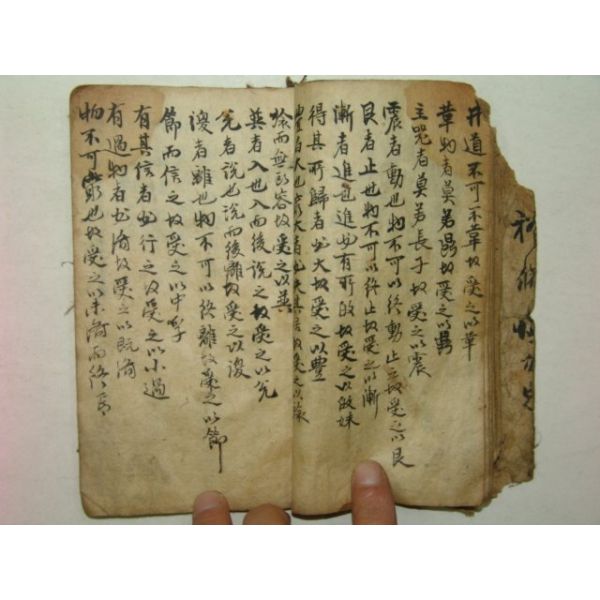 井道不可不革故受之以革
革物者莫若鼎故受之以鼎
主器者莫若長子故受之以震
震者動也物不可以終動止之故受之以艮
艮者止也物不可以終止故受之以漸
漸者進也進必有所歸故受之以歸妹
得其所歸者必大故受之以豐
豐者大也窮大者必失其居故受之以旅
旅而無所容故受之以巽
巽者入也入而後說之故受之以兌
兌者說也說而後離故受之以渙
渙者離也物不可以終離故受之以節
節而信之故受之以中孚
有其信者必行之故受之以小過
有過物者必濟故受之以既濟
物不可窮也故受之以未濟而終焉